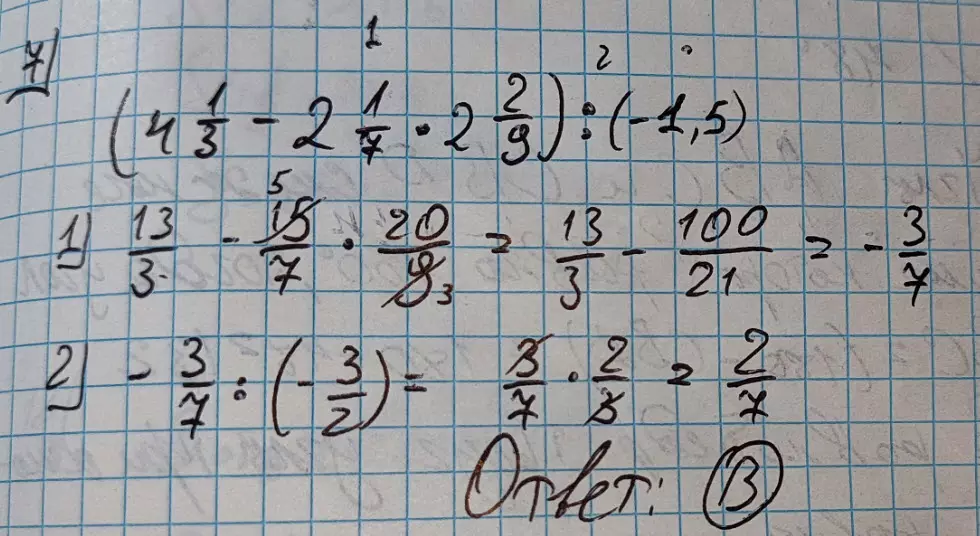 7)
1 2
(4 1/3 - 2 1/7 · 2 2/9) : (-1,5)
1) 13/3 - 15/7 · 20/9 = 13/3 - 100/21 = - 3/7
5 3
2) - 3/7 : (- 3/2) = 3/7 · 2/3 = 2/7
Ответ: В